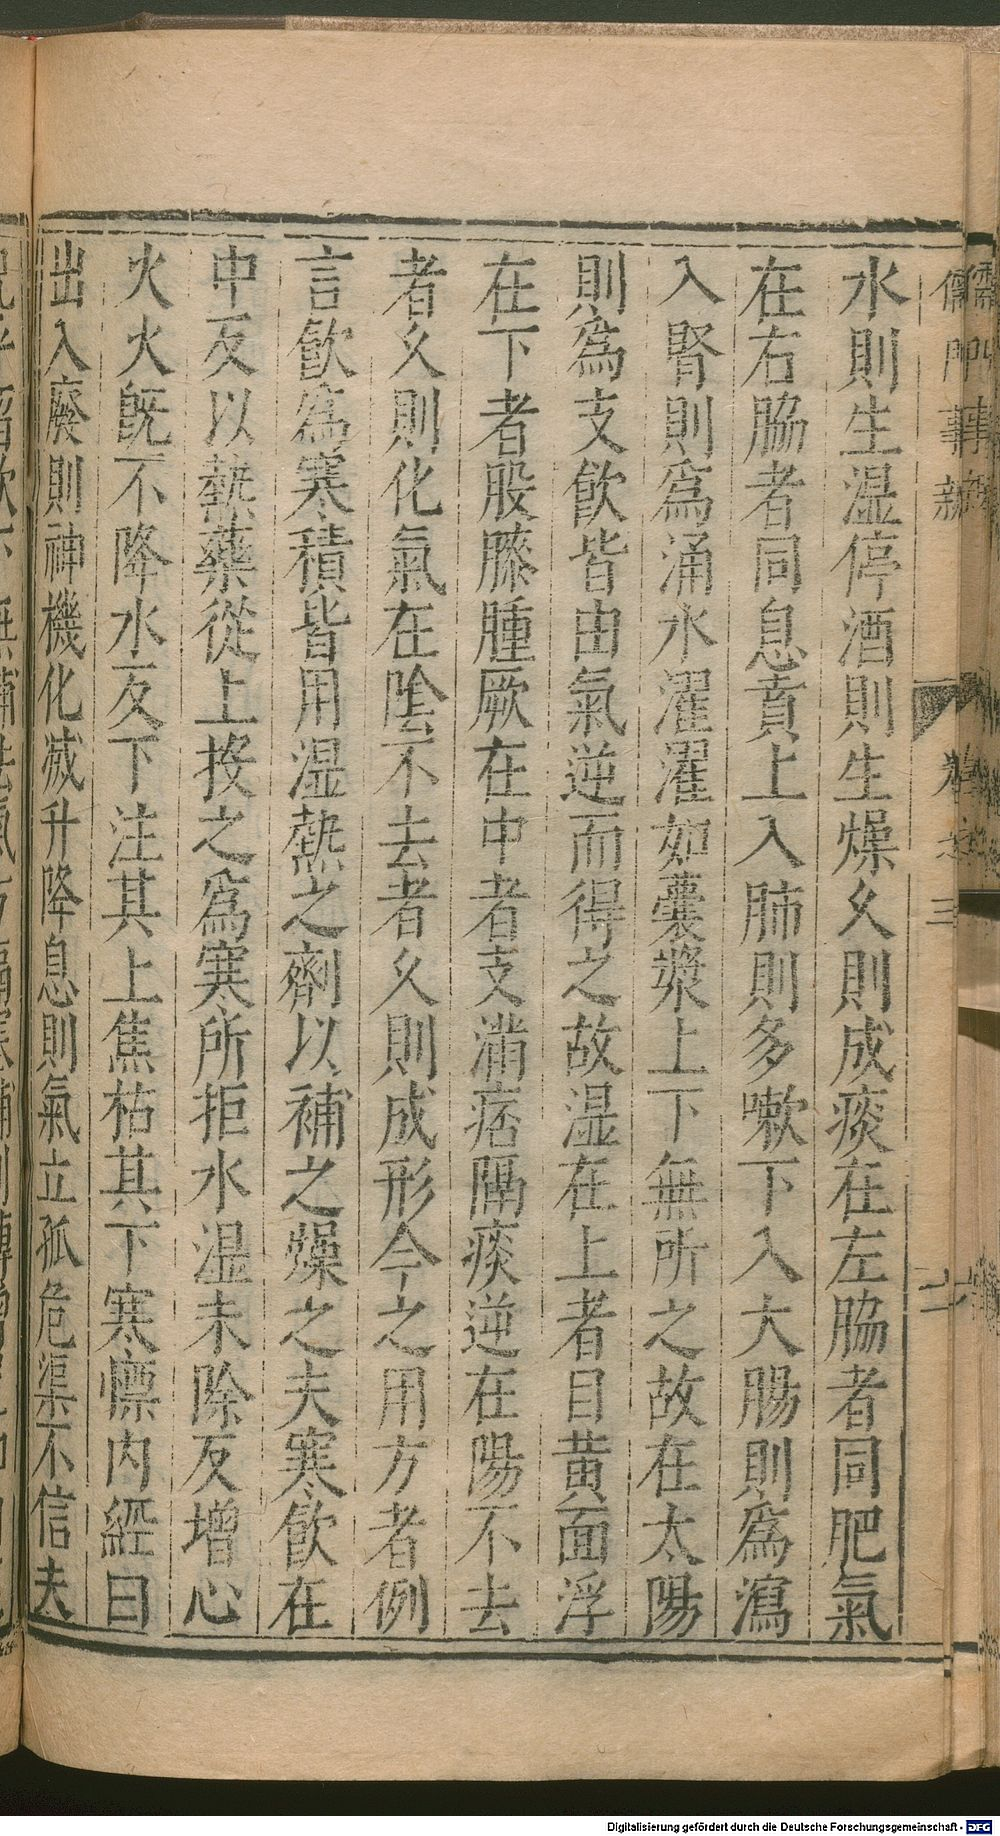 儒門事親
卷之三
水則生湿停酒則生燥久則成痰在左脇者同肥氣
在右脇者同息賁上入肺則多嗽下入大腸則爲瀉
入腎則爲涌水濯濯如囊漿上下無所之故在太陽
則爲支飲皆由氣逆而得之故湿在上者目黄面浮
在下者股膝腫厥在中者支滿痞隔痰逆在陽不去
者久則化氣在陰不去者久則成形今之用方者例
言飲爲寒積皆用湿熱之劑以補之燥之夫寒飲在
中反以熱藥從上投之爲寒所拒水湿未除反增心
火火既不降水反下注其上焦枯其下寒慄内經曰
出入廢則神機化滅升降息則氣立孤危渠不信夫
Digitalisierung gefördert durch die Deutsche Forschungsgemeinschaft - DFG